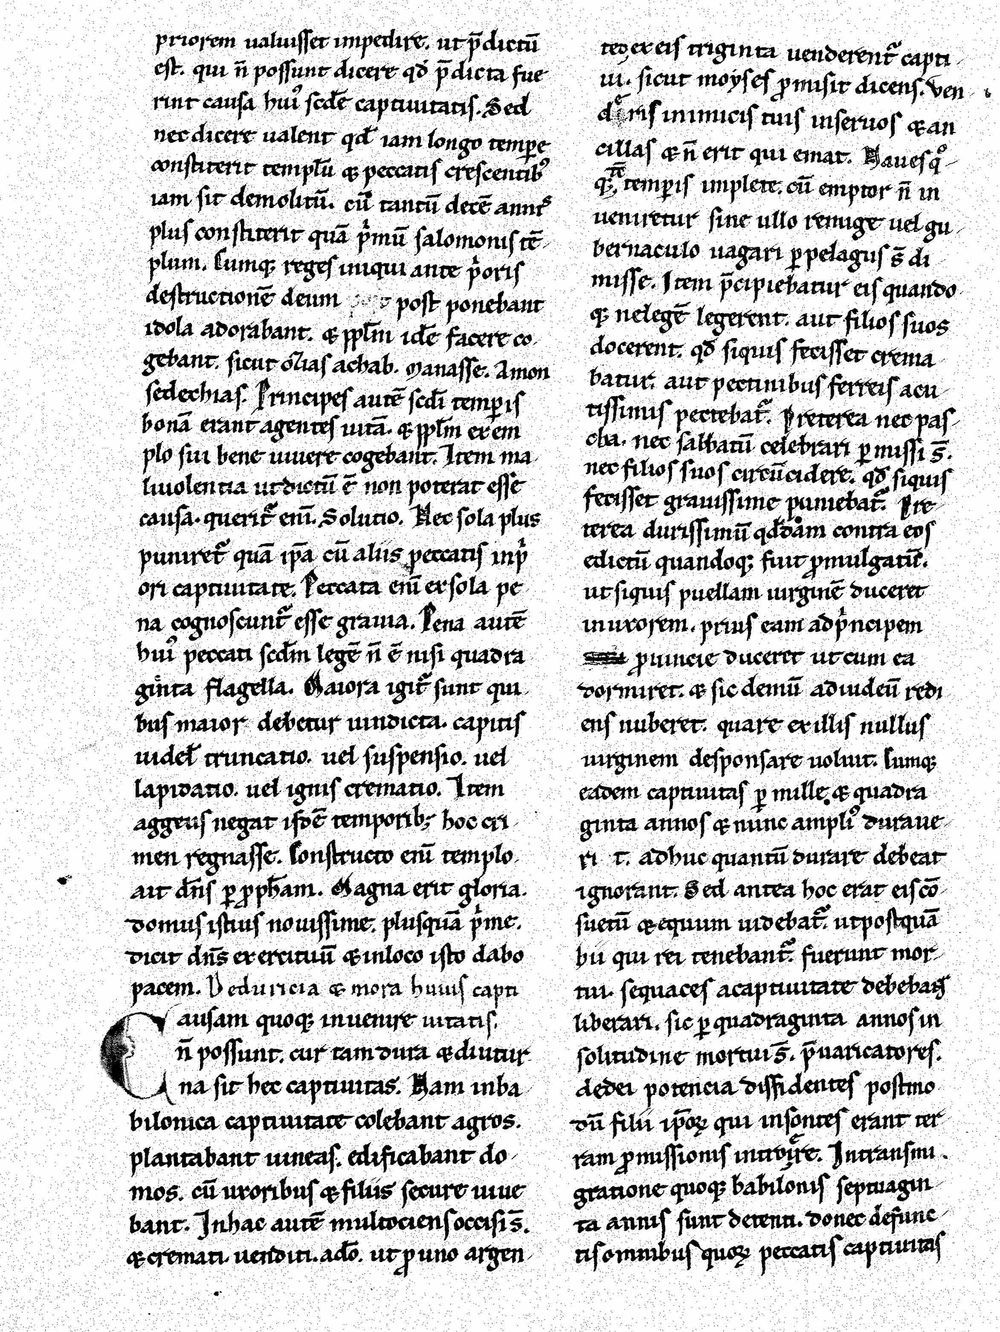 priorem ualuisset impedire. ut p̄dictū
est. qui n̄ possunt dicere qđ p̄dicta fue
rint causa huiꝰ scđe captiuitatis. Sed
nec dicere ualent qđ iam longo tempe
constiterit templū & peccatis crescentibꝰ
iam sit demolitū. cū tantū decē annis
plus constiterit quā p̾mū salomonis tē-
plum. Cumq; reges iniqui ante p̾oris
destructionē deum post ponebant
idola adorabant. & pp̄lm idē facere co-
gebant. sicut ōlias achab. Manasse. Amon
sedechias. Principes autē scđi temp̱is
bonā erant agentes uitā. & pp̄lm exem
plo sui bene uiuere cogebant. Item ma-
liuolentia ut dictū ē non poterat esse
causa. querit̄ enī. Solutio. Nec sola plus
puniret̄ quā ip̄a cū aliis peccatis in p̾
ori captiuitate. Peccata enī ex sola pe-
na cognoscunt̄ esse grauia. Pena autē
huiꝰ peccati scđm legē n̄ ē nisi quadra
ginta flagella. Maiora igit̄ sunt qui-
bus maior debetur uindicta. capitis
uideł truncatio. uel suspensio. uel
lapidatio. uel ignis crematio. Item
aggeus negat isdē temporib; hoc cri-
men regnasse. Constructo enī templo.
ait dn̄s p̱ pp̄ham. Magna erit gloria.
domus istius nouissime. plusquā p̾me.
dicit dn̄s exercituū & in loco isto dabo
pacem. De duricia & mora huius capti
Causam quoq; inuenire uitatis.
n̄ possunt. cur tam dura & diutur
na sit hec captiuitas. Nam in ba
bilonica captiuitate colebant agros.
plantabant uineas. edificabant do-
mos. cū uxoribus & filiis secure uiue
bant. In hac autē multociens occisi s̄.
& cremati. uenditi. adō. ut ꝓ uno argen-
teo ex eis triginta uenderent̄ capti-
ui. sicut moyses ꝓmisit dicens. Ven
deris inimicis tuis in seruos & an
cillas & n̄ erit qui emat. Naues qͦ-
q; temp̱is implete. cū emptor n̄ in
ueniretur sine ullo remige uel gu-
bernaculo uagari p̱ pelagus s̄ di
misse. Item p̄cipiebatur eis quando
q; ne legē legerent. aut filios suos
docerent. qđ siquis fecisset crema
batur. aut pectinibus ferreis acu-
tissimis pectebat̄. Preterea nec pas-
cha. nec sabbatū celebrari p̱missi s̄.
nec filios suos circūcidere. qđ siquis
fecisset grauissime puniebat̄. Pre-
terea durissimū qđdam contra eos
edictū quandoq; fuit ꝓmulgatū.
ut siquis puellam uirginē duceret
in uxorem. prius eam ad p̾ncipem
ꝓuincie duceret ut cum ea
dormiret. & sic demū ad iudeū redi
ens nuberet. quare ex illis nullus
uirginem desponsare uoluit. Cumq;
eadem captiuitas p̱ mille & quadra
ginta annos & nunc ampliꝰ duraue-
rit. adhuc quantū durare debeat
ignorant. Sed antea hoc erat eis cō-
suetū & equum uidebat̄. ut postquā
hii qui rei tenebant̄. fuerunt mor-
tui. sequaces a captiuitate debebant
liberari. sic p̱ quadraginta annos in
solitudine mortui s̄. p̄uaricatores.
de dei potencia diffidentes postmo-
dū filii ip̄oꝝ qui insontes erant ter-
ram ꝓmissionis intrare. In transmi-
gratione quoq; babilonis septuagin-
ta annis sunt detenti. donec defunc-
tis omnibus quoꝝ peccatis captiuitas